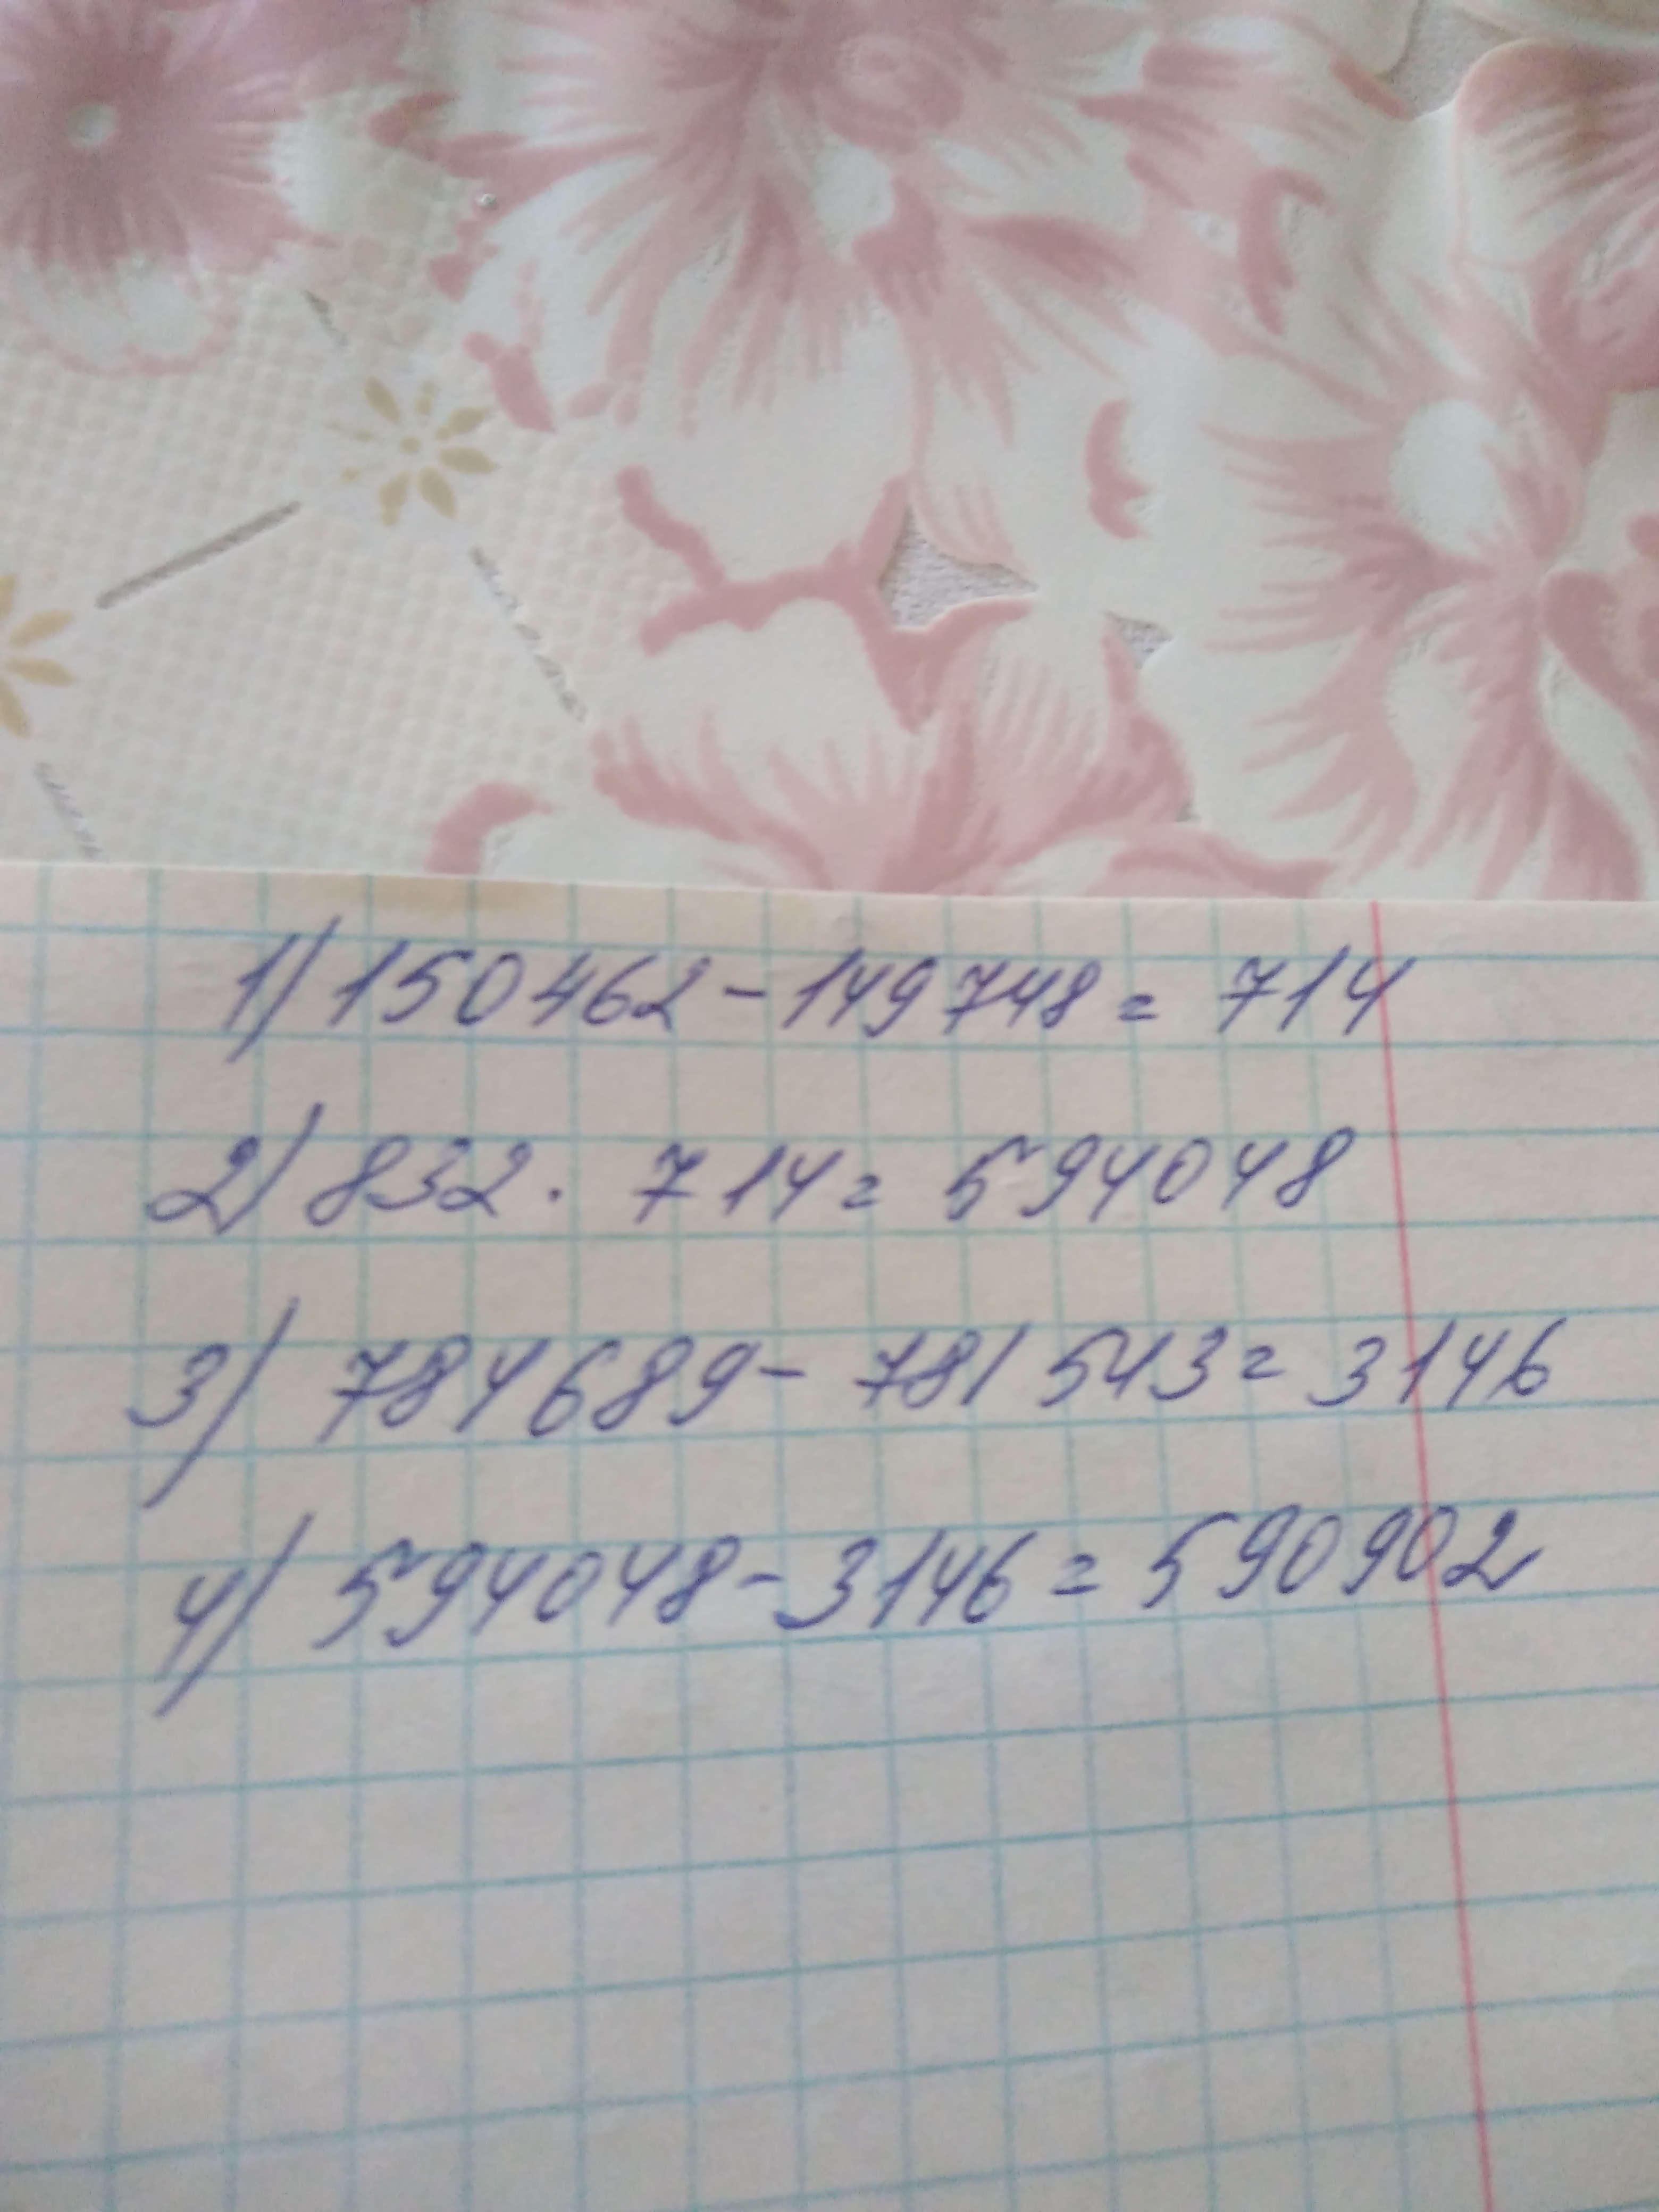 1) 150462 - 149748 = 714
2) 832 · 714 = 594048
3) 784689 - 781543 = 3146
4) 594048 - 3146 = 590902